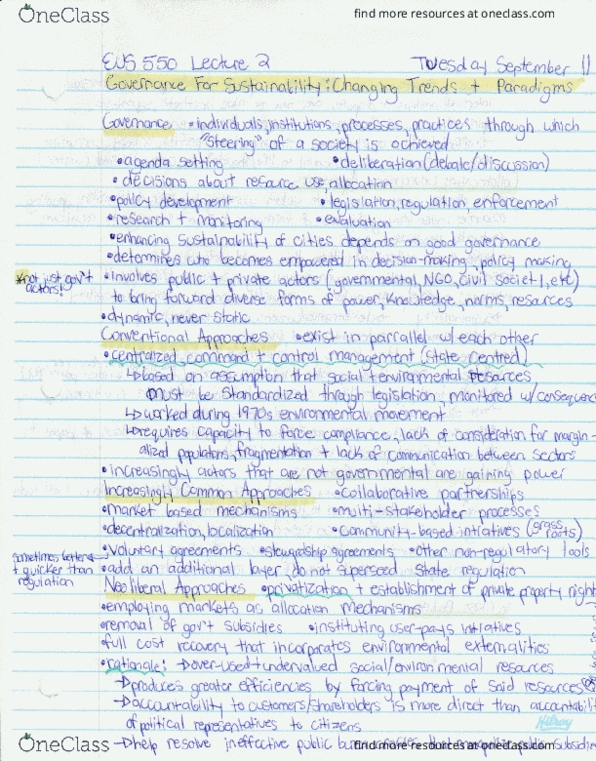 OneClass
find more resources at oneclass.com
EUS 550 Lecture 2 Tuesday September 11
Governance For Sustainability: Changing Trends + Paradigms
Governance •individuals, institutions, processes, practices through which
"steering" of a society is achieved
•agenda setting •deliberation (debate/discussion)
•decisions about resource use, allocation
•policy development •legislation, regulation, enforcement
•research + monitoring •evaluation
•enhancing sustainability of cities depends on good governance
•determines who becomes empowered in decision-making, policy making
*not just gov't actors! •involves public + private actors (governmental, NGO, civil societ1, etc)
to bring forward diverse forms of power, knowledge, norms, resources
•dynamic, never static
Conventional Approaches •exist in parrallel w/ each other
•centralized, command + control management (state centred)
↳based on assumption that social + environmental resources
must be standardized through legislation, monitored w/ consequenc
↳worked during 1970s environmental movement
↳requires capacity to force compliance, lack of consideration for margin-
alized populations, fragmentation + lack of communication between sectors
•increasingly actors that are not governmental are gaining power
Increasingly Common Approaches •collaborative partnerships
•market based mechanisms •multi-stakeholder processes
•decentralization, localization •community-based intiatives (grass roots)
•voluntary agreements •stewardship agreements •other non-regulatory tools
sometimes better + quicker than regulation •add an additional layer, do not superseed state regulation
Neoliberal Approaches •privatization + establishment of private property right
•employing markets as allocation mechanisms
•removal of gov't subsidies •instituting user-pays intiatives
•full cost recovery that incorporates environmental externalities
•rationale: →over-used + undervalued social/environmental resources
→produces greater efficiencies by forcing payment of said resources
→accountability to customers/shareholders is more direct than accountabil
of political representatives to citizens
Hilroy
→help resolve ineffective public
OneClass
find more resources at oneclass.com